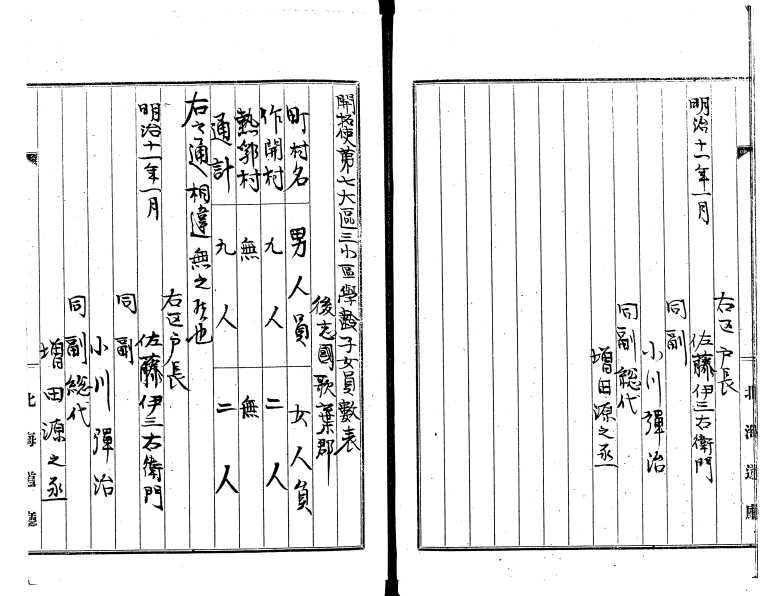 明治十一年一月
右区戸長
佐藤伊三右衛門
同副
小川彈治
同副総代
増田源之丞
北海道廳
開拓使第七大區三小區學齢子女員數表
後志國歌葉郡
町村名 男人員 女人員
作開村 九人 二人
熱郛村 無 無
通計 九人 二人
右之通相違無之候也
明治十一年一月
右区戸長
佐藤伊三右衛門
同副
小川彈治
同副総代
増田源之丞
北海道廳